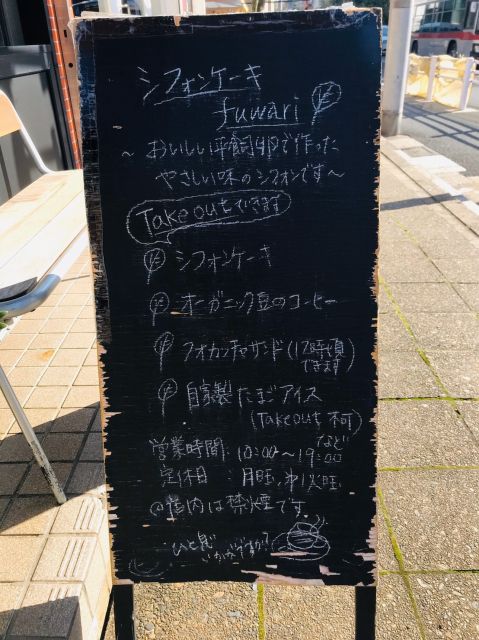 シフォンケーキ
fuwari
～おいしい平飼卵で作った
やさしい味のシフォンです～
Take outできます
シフォンケーキ
オーガニック豆のコーヒー
フォカッチャサンド(12時頃できます)
自家製たまごアイス
(Take out 不可)
など
営業時間:10:00～19:00
定休日:月曜、第1火曜
@店内は禁煙です
ひと息
いかがですか?